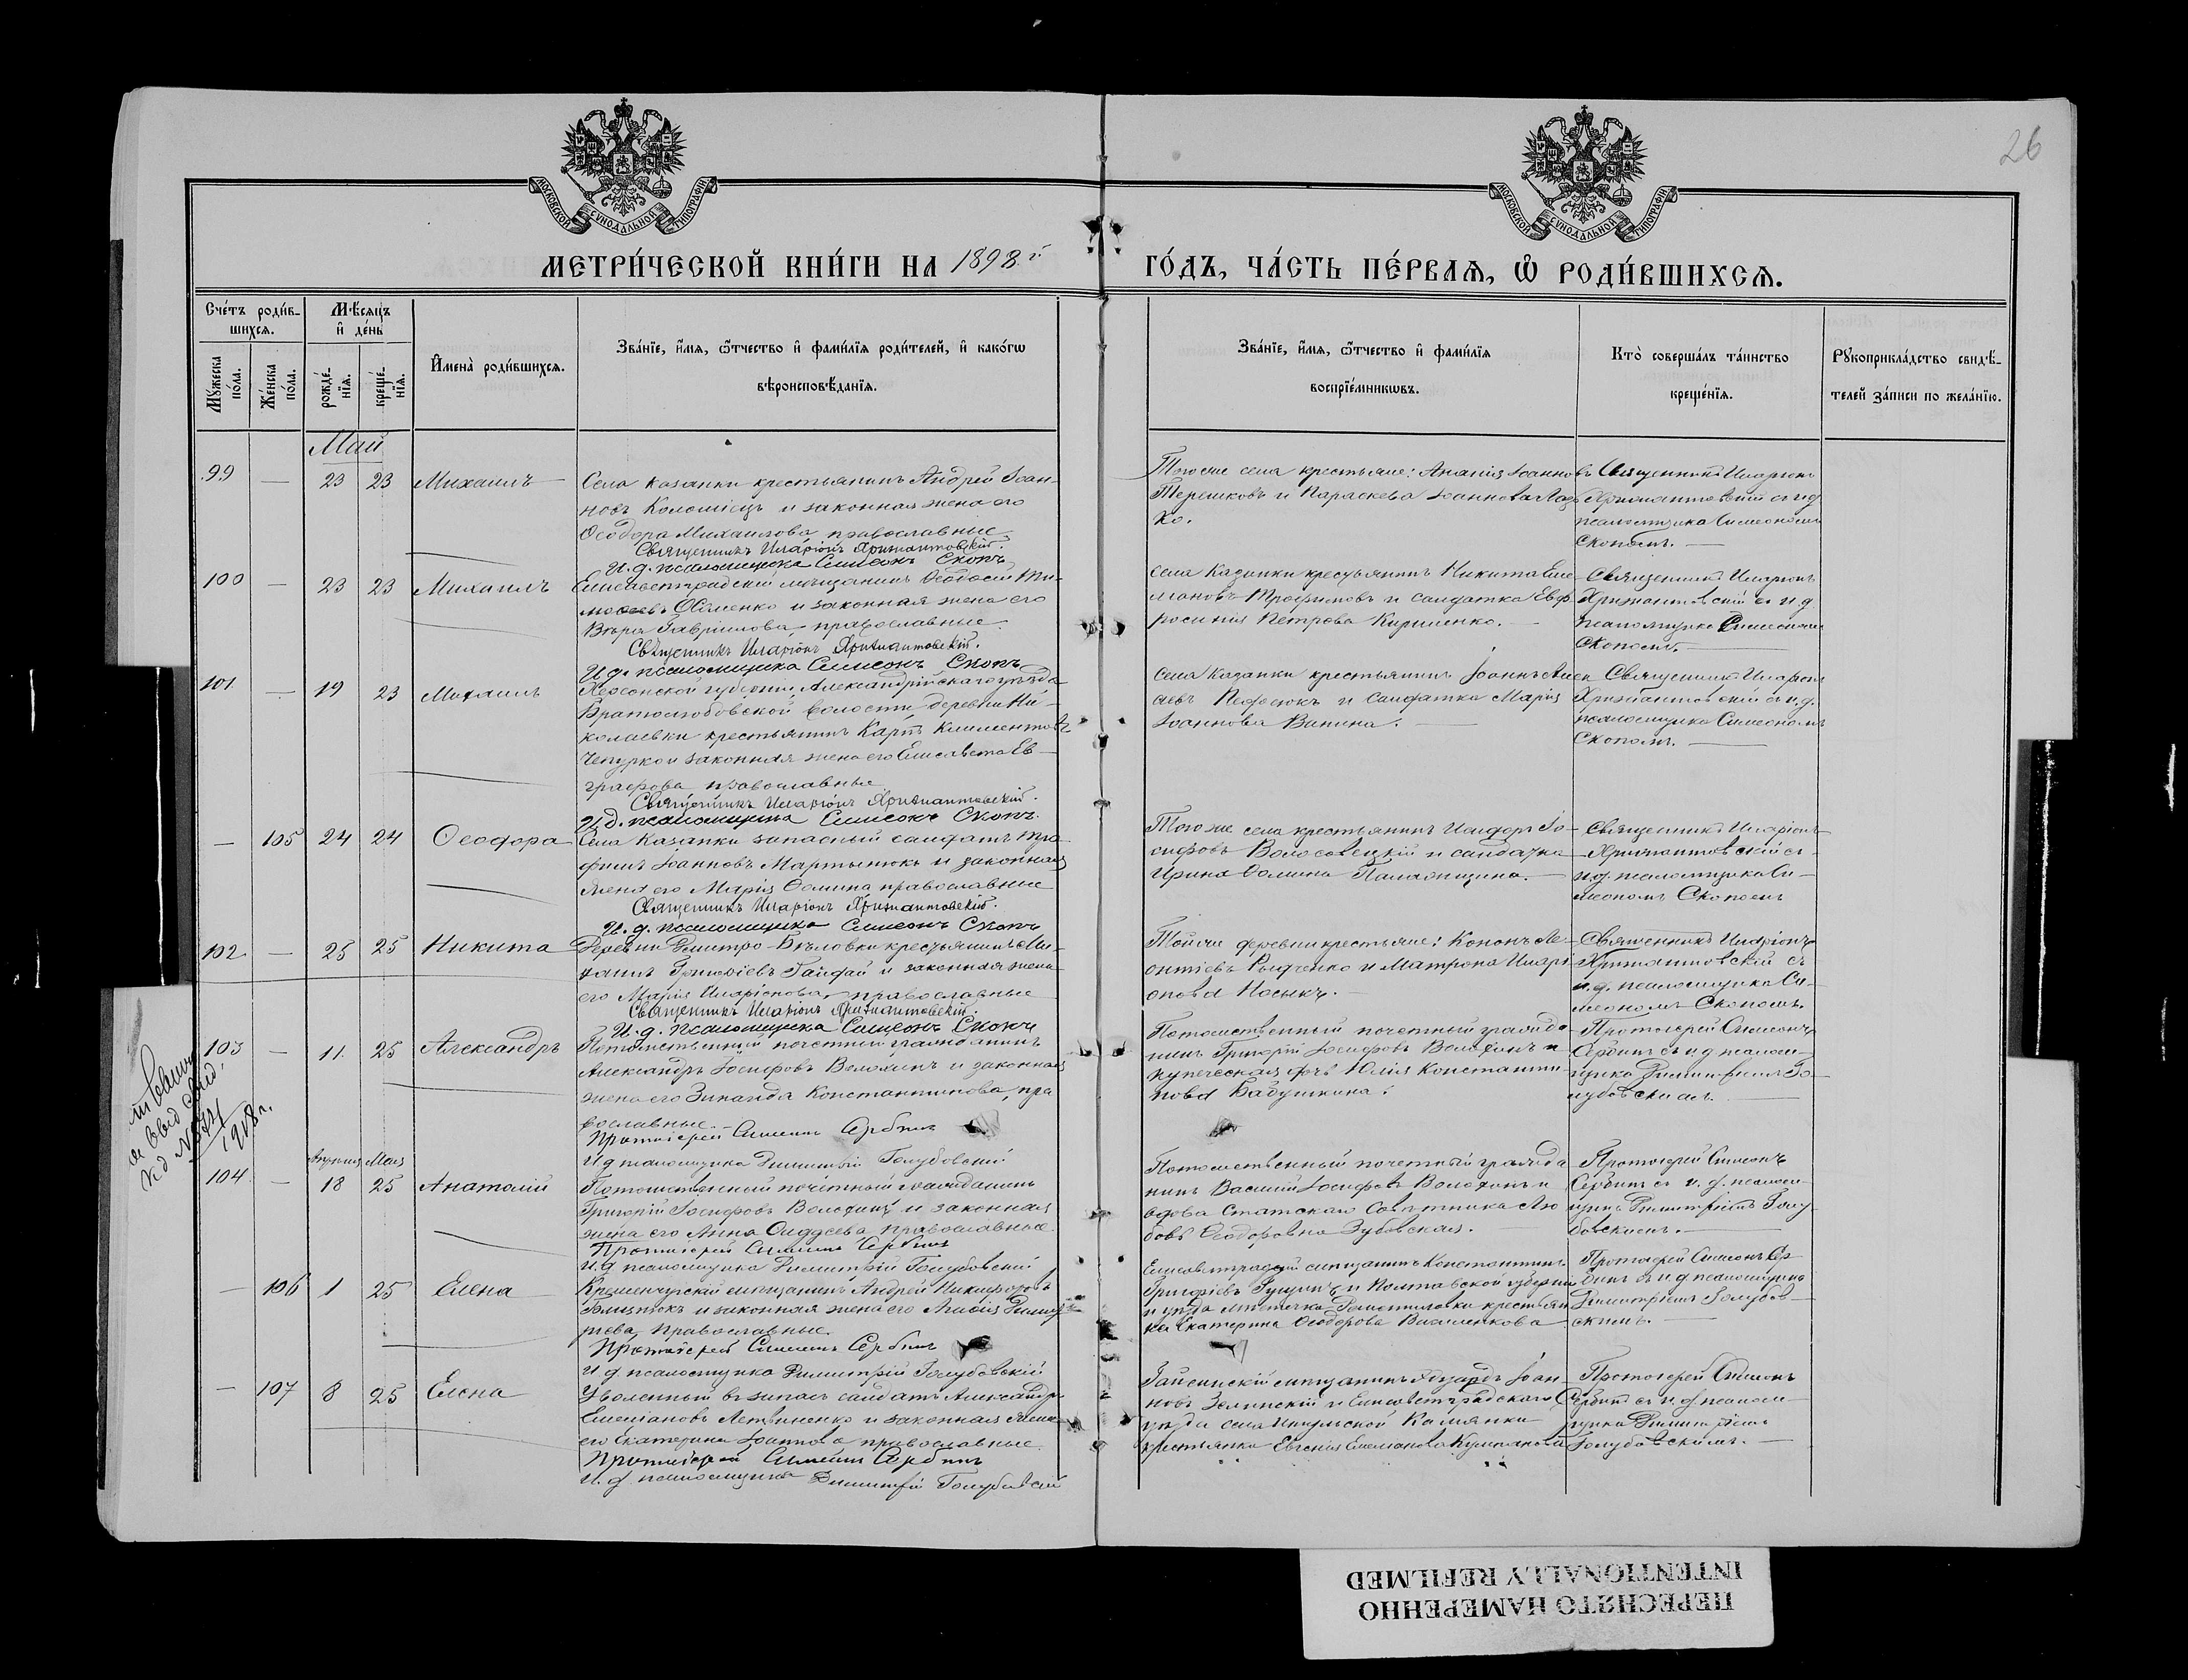 26
МОСКОВСКОЙ СѴНОДАЛЬНОЙ ТИПОГРАФІИ
МОСКОВСКОЙ СѴНОДАЛЬНОЙ ТИПОГРАФІИ
МЕТРИ́ЧЕСКОЙ КНИ́ГИ НА 1898 г.
ГО́ДЪ, ЧА́СТЬ ПЕ́РВАѦ, Ѡ РОДИ́ВШИХСѦ.
Сче́тъ роди́в-
шихсѧ.
Мꙋ́жеска по́ла.
Же́нска по́ла.
Мѣ́сѧцъ
и҆ де́нь
рожде́-
нїѧ.
креще́-
нїѧ.
И҆мена̀ роди́вшихсѧ.
Зва́нїе, и҆́мѧ, ѻ҆́тчество и҆ фами́лїѧ роди́телей, и҆ како́гѡ
вѣроисповѣ́данїѧ.
Зва́нїе, и҆́мѧ, ѻ҆́тчество и҆ фами́лїѧ
воспрїе́мникѡвъ.
Кто̀ соверша́лъ та́инство
креще́нїѧ.
Рꙋкоприкла́дство свидѣ́-
телей за́писи по жела́нїю.
Май
99 — 23 23 Михаилъ
Села Казанки крестьянинъ Андрей Іоан-
новъ Коломіецъ и законная жена его
Ѳеодора Михаилова, православные
Священникъ Иларіонъ Хризантовскій.
И. д. псаломщика Симеонъ Скопъ
Того же села крестьяне: Ананія Іоанновъ
Терешковъ и Параскева Іоаннова
ко.
Священникъ Иларіонъ
Хризантовскій съ и д
псаломщика Симеономъ
Скопомъ.
100 — 23 23 Михаилъ
Елисаветградскій мѣщанинъ Ѳеодосій Ти-
моѳеевъ и законная жена его
Вѣра Гавріилова, православные
Священникъ Иларіонъ Хризантовскій.
И д. псаломщика Симеонъ Скопъ
Села Казанки крестьянинъ Никита Еме-
ліановъ Трофимовъ и солдатка Евф-
росинія Петрова Кириленко.
Священникъ Иларіонъ
Хризантовскій съ и д
псаломщика Симеономъ
Скопомъ.
101 — 19 23 Михаилъ
Херсонской губерніи, Александрійскаго уѣзда
Братолюбовской волости деревни Ни-
колаевки крестьянинъ Карпъ Климентовъ
Чепурко и законная жена его Елисавета Ев-
графова православные
Священникъ Иларіонъ Хризантовскій.
И. д. псаломщика Симеонъ Скопъ.
Села Казанки крестьянинъ Іоаннъ
и солдатка Марія
Іоаннова Ванина.
Священникъ Иларіонъ
Хризантовскій съ и. д.
псаломщика Симеономъ
Скопомъ.
— 105 24 24 Ѳеодора
Села Казанки запасный солдатъ Тро-
фимъ Іоанновъ Мартынюкъ и законная
жена его Марія Ѳомина православные
Священникъ Иларіонъ Хризантовскій.
И. д. псаломщика Симеонъ Скопъ
Того же села крестьянинъ Исидоръ Іо-
сифовъ Волосовецкій и солдатка
Ирина Ѳомина
Священникъ Иларіонъ
Хризантовскій съ
и д. псаломщика Си-
меономъ Скопомъ
102 — 25 25 Никита
Деревни Дмитро-Бѣловки крестьянинъ Ми-
хаилъ Григоріевъ Гайдай и законная жена
его Марія Иларіонова, православные
Священникъ Иларіонъ Хризантовскій.
И. д. псаломщика Симеонъ Скопъ
Той же деревни крестьяне: Кононъ Ле-
онтіевъ и Матрона Илари-
онова Носыкъ.
Священникъ Иларіонъ
Хризантовскій съ
и. д. псаломщика Си-
меономъ Скопомъ.
103 — 11 25 Александръ
Потомственный почетный гражданинъ
Александръ Іосифовъ Волохинъ и законная
жена его Зинаида Константинова, пра
вославные.
Протоіерей Симеонъ Сербинъ
И д псаломщика Димитрій Голубовскій
Потомственный почетный гражда
нинъ Григорій Іосифовъ Волохинъ и
купеческая дочь Юлія Константи-
нова Бабушкина.
Протоіерей Симеонъ
Сербинъ съ и д псалом-
щика Димитріемъ Го-
лубовскимъ.
1908 г.
Апрѣля Мая
104 — 18 25 Анатолій
Потомственный почетный гражданинъ
Григорій Іосифовъ Волохинъ и законная
жена его Анна Ѳаддеева, православные
Протоіерей Симеонъ Сербинъ
И. д псаломщика Димитрій Голубовскій
Потомственный почетный гражда
нинъ Василій Іосифовъ Волохинъ и
вдова Статскаго Совѣтника Лю
бовь Ѳеодоровна Зубовская.
Протоіерей Симеонъ
Сербинъ съ и. д. псалом-
щика Димитріемъ Голу-
бовскимъ.
— 106 1 25 Елена
Кременчугскій мѣщанинъ Андрей Никифоровъ
Близнюкъ и законная жена его
православные
Протоіерей Симеонъ Сербинъ
И д псаломщика Димитрій Голубовскій
Елисаветградскій мѣщанинъ Константинъ
Григоріевъ и Полтавской губерніи
и уѣзда мѣстечка Решетиловки крестьян
ка Екатерина Ѳеодорова
Протоіерей Симеонъ Сер-
бинъ съ и д псаломщика
Димитріемъ Голубов-
скимъ.
— 107 8 25 Елена
Уволенный въ запасъ солдатъ Александръ
Емеліановъ Литвиненко и законная жена
его Екатерина Іоаннова православные.
Протоіерей Симеонъ Сербинъ
И. д псаломщика Димитрій Голубовскій
Гайсинскій мѣщанинъ Эдуардъ Іоан-
новъ Зелинскій и Елисаветградскаго
уѣзда села Ингульской Каменки
крестьянка Евгенія Емеліанова
Протоіерей Симеонъ
Сербинъ съ и. д. псалом-
щика Димитріемъ
Голубовскимъ.
ПЕРЕСНЯТО НАМЕРЕННО
INTENTIONALLY REFILMED